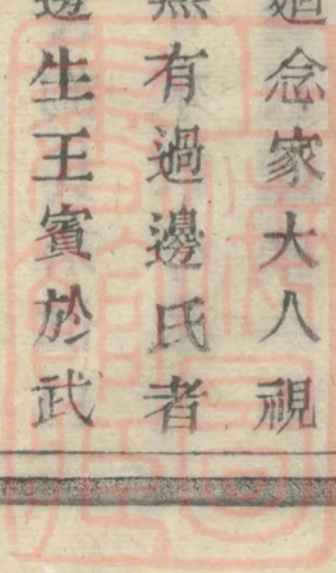 迴念家大人視
無有過邊氏者
邊生王賓於武